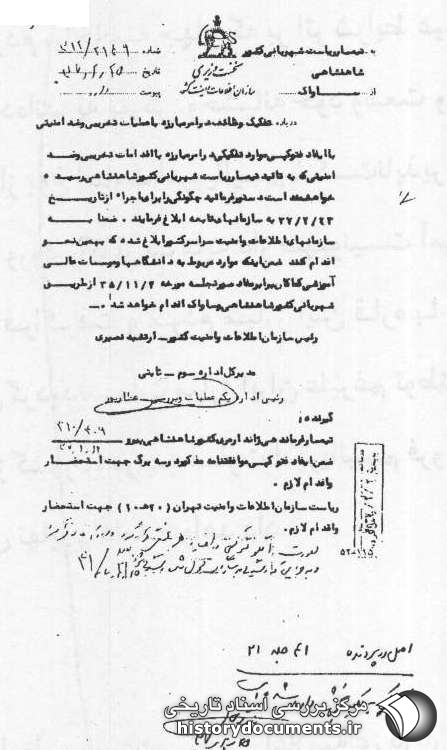 به تیمسار ریاست شهربانی کشور شاهنشاهی
از ساواک
نخست وزیری
سازمان اطلاعات و امنیت کشور
شماره
تاریخ
پیوست
درباره تفکیک وظائف در امر مبارزه با عملیات تخریبی و ضد امنیتی
با ایفاد فتوکپی موارد تفکیکی در امر مبارزه با اقدامات تخریبی و ضد
امنیتی که به تائید تیمسار ریاست شهربانی کشور شاهنشاهی رسیده
خواهشمند است دستور فرمائید چگونگی را برای اجرا از تاریخ
۳۷/۲/۲۳ به سازمانهای تابعه ابلاغ فرمایند . ضمنا به
سازمانهای اطلاعات و امنیت سراسر کشور ابلاغ شده که بهمین نحو
اقدام کنند ضمن اینکه موارد مربوط به دانشگاهها و موسسات عالی
آموزشی کماکان برابر مفاد صورتجلسه مورخه ۳۵/۱۱/۲ از طریق
شهربانی کشور شاهنشاهی و ساواک اقدام خواهد شد .
رئیس سازمان اطلاعات و امنیت کشور ـ ارتشبد نصیری
مدیرکل اداره سوم ـ ثابتی
رئیس اداره یکم عملیات و بررسی ـ عطارپور
گیرنده :
تیمسار فرماندهی ژاندارمری کشور شاهنشاهی پیرو
ضمن ایفاد فتوکپی موافقتنامه مذکور در سه برگ جهت استحضار
و اقدام لازم .
ریاست سازمان اطلاعات و امنیت تهران (۲۰هـ۱۰) جهت استحضار
و اقدام لازم .
اصل در پرونده
مرکز بررسی اسناد تاریخی
historydocuments.ir